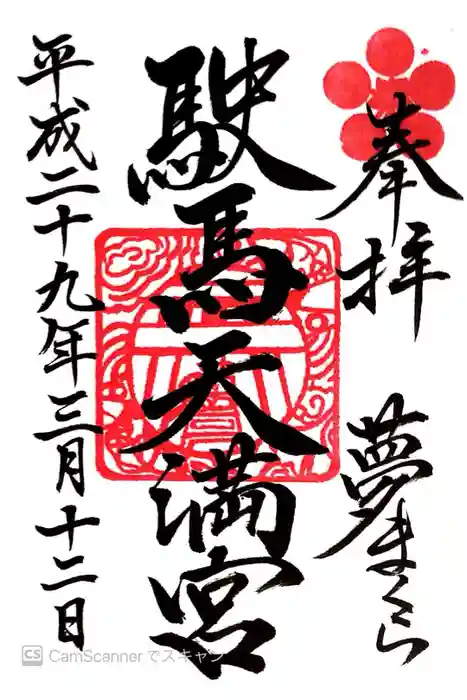 奉拝 夢まくら
駛馬天満宮
平成二十九年三月十二日
CS CamScannerでスキャン